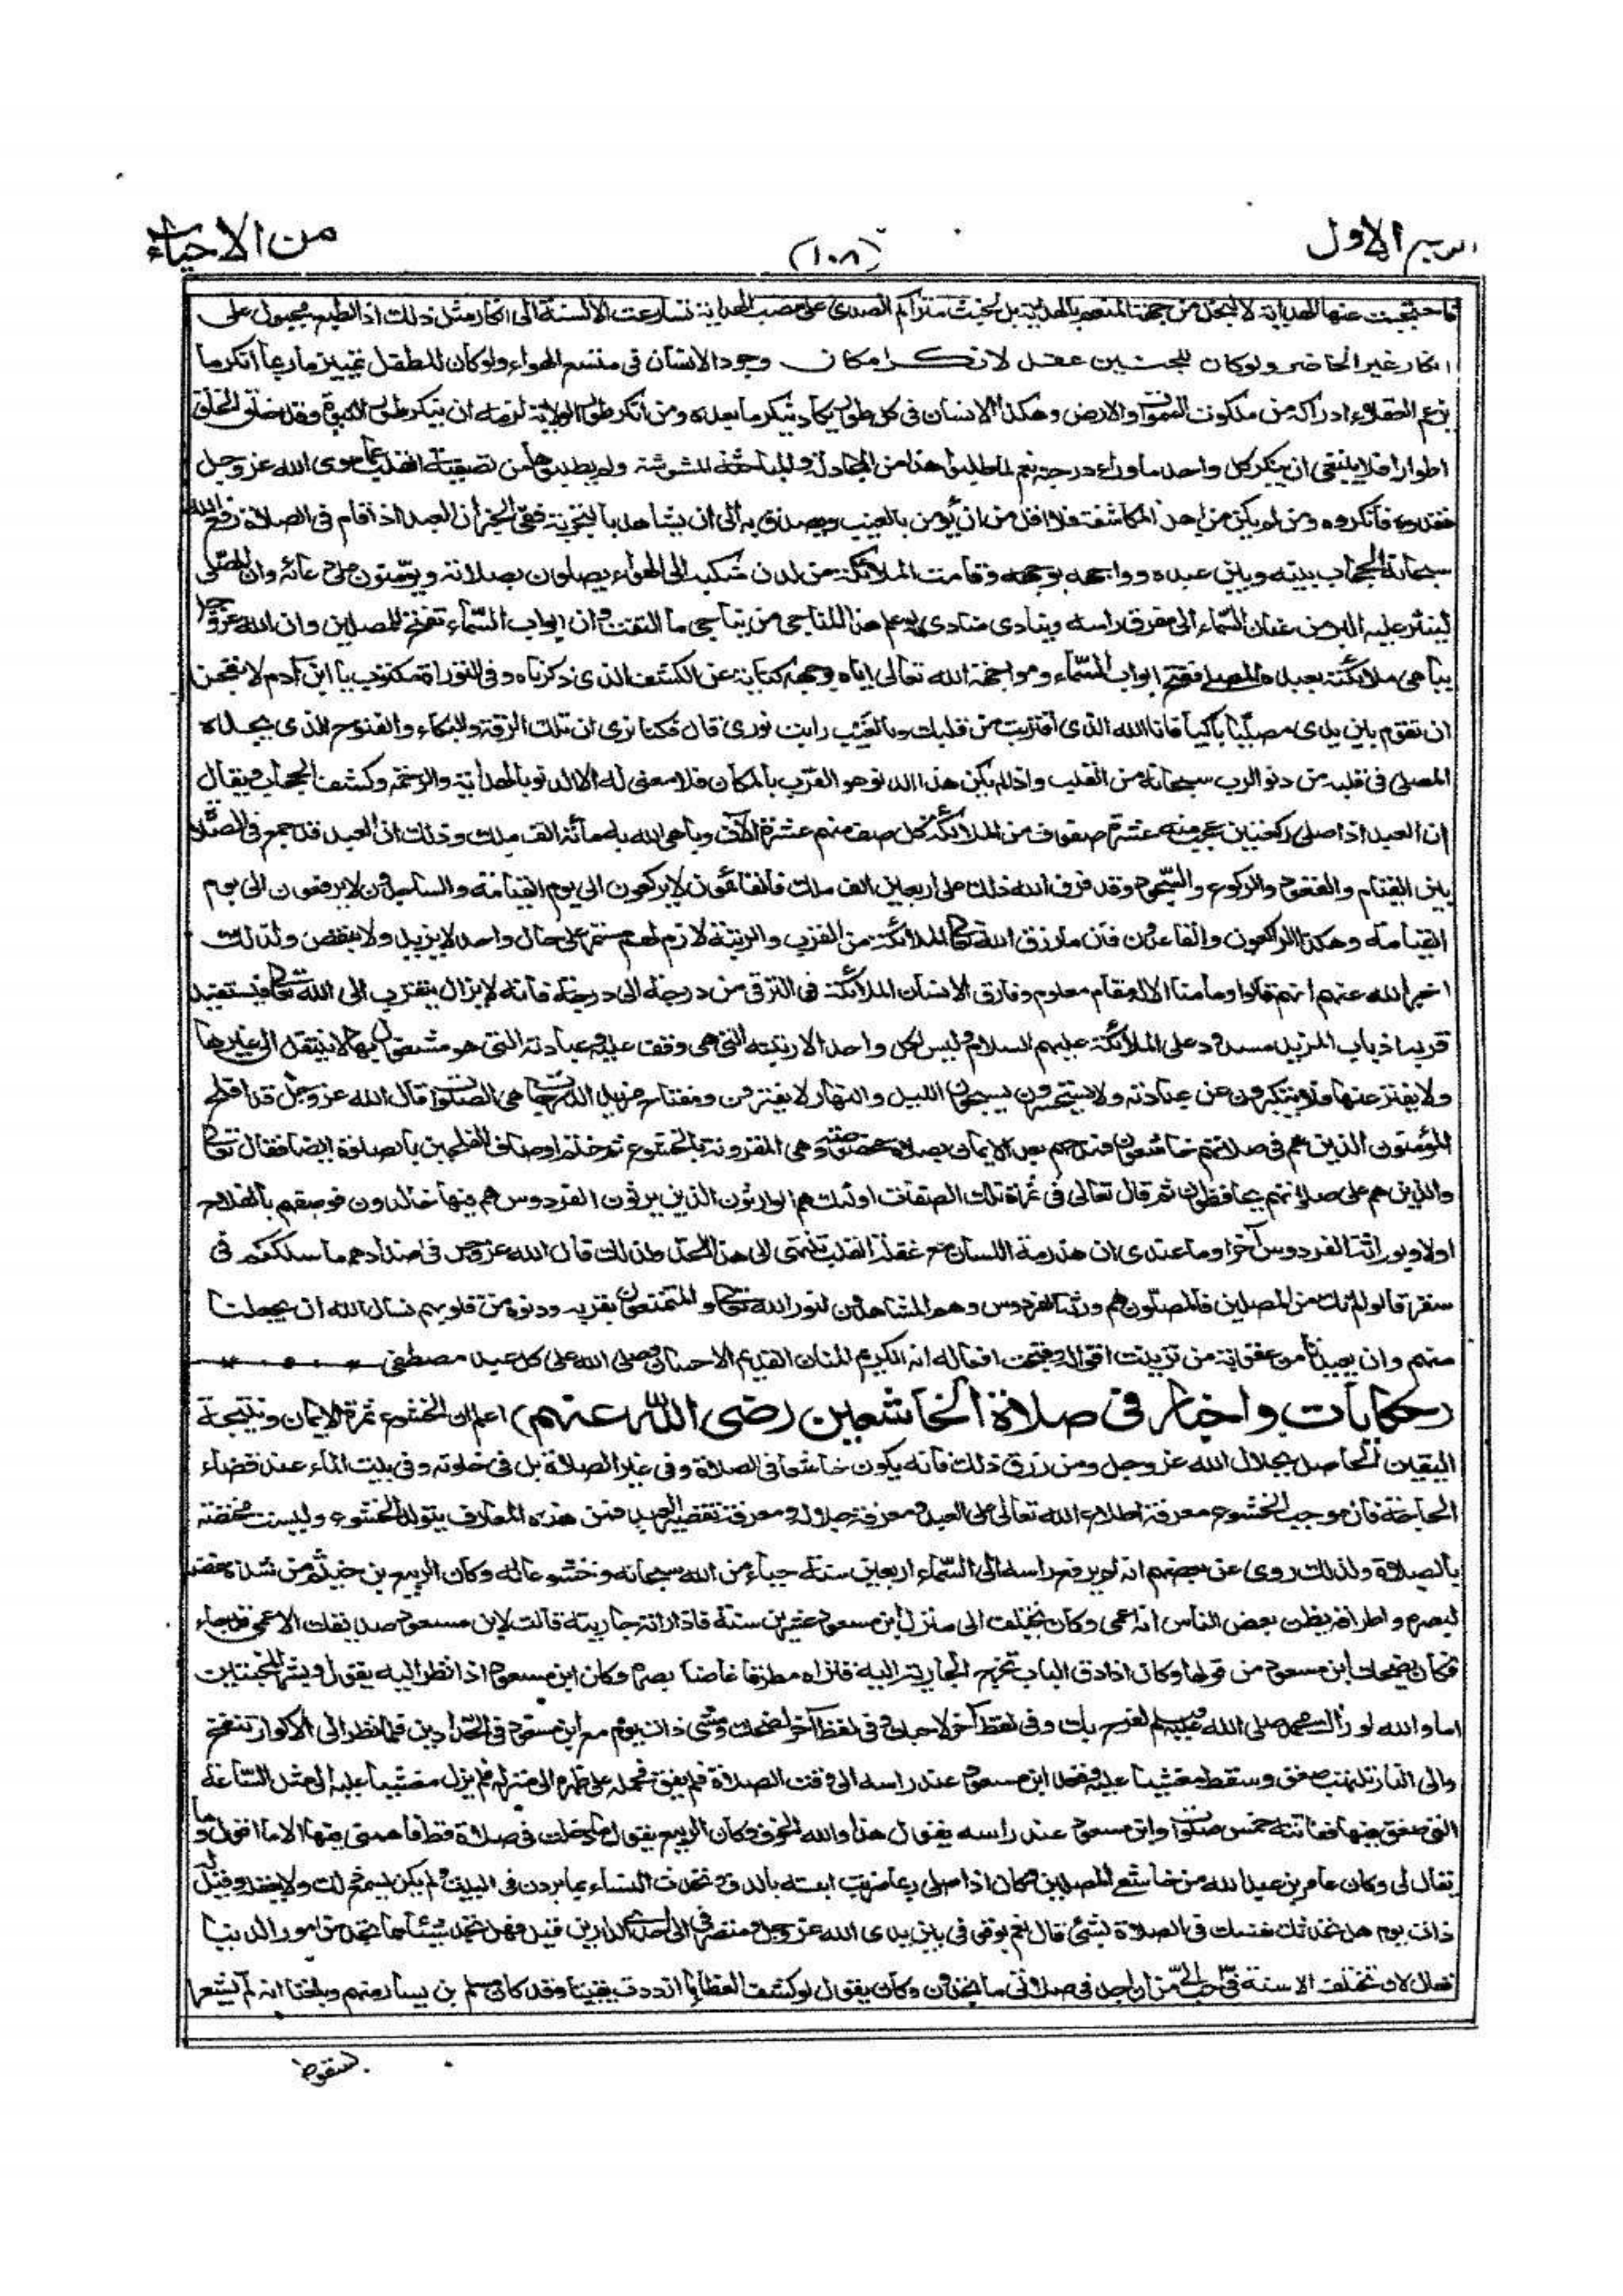 الربع الاول (١٠٨) من الاحياء
فاحتجبت عنها الهداية لا لبخل من جهة المنعم بالهداية بل لخبث متراكم الصدى على مصب الهداية تسارعت الالسنة الى انكار مثل ذلك اذ الطبع مجبول على
انكار غير الحاضر ولو كان للجنين عقل لانكر امكان وجود الانسان في متسع الهواء ولو كان للطفل تمييز ما ربما انكر ما
يزعم العقلاء ادراكه من ملكوت السموات والارض وهكذا الانسان في كل طور يكاد ينكر ما بعده ومن انكر طور الولاية لزمه ان ينكر طور النبوة وقد خلق الخلق
اطوارا فلا ينبغي ان ينكر كل واحد ما وراء درجته نعم لما طلبوا هذا من المجادلة والمباحثة المشوشة ولم يطلبوها من تصفية القلب عما سوى الله عز وجل
فقدوه فانكروه ومن لم يكن من اهل المكاشفة فلا اقل من ان يؤمن بالغيب ويصدق به الى ان يشاهد بالتجربة ففي الخبر ان العبد اذا قام في الصلاة رفع الله
سبحانه الحجاب بينه وبين عبده وواجهه بوجهه وقامت الملائكة من لدن منكبيه الى الهواء يصلون بصلاته ويؤمنون على دعائه وان المصلي
لينثر عليه البر من عنان السماء الى مفرق راسه وينادي مناد لو علم هذا المناجي من يناجي ما التفت وان ابواب السماء تفتح للمصلين وان الله عز وجل
يباهي ملائكته بعبده المصلي ففتح ابواب السماء ومواجهة الله تعالى اياه بوجهه كناية عن الكشف الذي ذكرناه وفي التوراة مكتوب يا ابن آدم لا تعجزن
ان تقوم بين يدي مصليا باكيا فانا الله الذي اقتربت من قلبك وبالغيب رايت نوري قال فكنا نرى ان تلك الرقة والبكاء والفتوح الذي يجده
المصلي في قلبه من دنو الرب سبحانه من القلب واذا لم يكن هذا الدنو هو القرب بالمكان فلا معنى له الا الدنو بالهداية والرحمة وكشف الحجاب ويقال
ان العبد اذا صلى ركعتين عجب منه عشرة صفوف من الملائكة كل صف منهم عشرة آلاف وباهى الله به مائة الف ملك وذلك ان العبد قد جمع في الصلاة
بين القيام والقعود والركوع والسجود وقد فرق الله ذلك على اربعين الف ملك فالقائمون لا يركعون الى يوم القيامة والساجدون لا يرفعون الى يوم
القيامة وهكذا الراكعون والقاعدون فان ما رزق الله تعالى الملائكة من القرب والرتبة لازم لهم مستمر على حال واحد لا يزيد ولا ينقص ولذلك
اخبر الله عنهم انهم قالوا وما منا الا له مقام معلوم وفارق الانسان الملائكة في الترقي من درجة الى درجة فانه لا يزال يتقرب الى الله تعالى فيستفيد
قربه اذ باب المزيد مسدود على الملائكة عليهم السلام وليس لكل واحد الا رتبته التي هي وقف عليه وعبادته التي هو مشغول بها لا ينتقل الى غيرها
ولا يفتر عنها فلا يستكبرون عن عبادته ولا يستحسرون يسبحون الليل والنهار لا يفترون ومفتاح مزيد الدرجات هي الصلوات قال الله عز وجل قد افلح
المؤمنون الذين هم في صلاتهم خاشعون فمدحهم بعد الايمان بصلاة مخصوصة وهي المقرونة بالخشوع ثم ختم اوصاف المفلحين بالصلوة ايضا فقال تعالى
والذين هم على صلاتهم يحافظون ثم قال تعالى في ثمرة تلك الصفات اولئك هم الوارثون الذين يرثون الفردوس هم فيها خالدون فوصفهم بالفلاح
اولا وبوراثة الفردوس آخرا وما عندي ان هذرمة اللسان مع غفلة القلب تنتهي الى هذا الحد ولذلك قال الله عز وجل في اضدادهم ما سلككم في
سقر قالوا لم نك من المصلين فالمصلون هم ورثة الفردوس وهم المشاهدون لنور الله تعالى والمتمتعون بقربه ودنوه من قلوبهم نسال الله ان يجعلنا
منهم وان يعيذنا من عقوبة من تزينت اقواله وقبحت افعاله انه الكريم المنان القديم الاحسان وصلى الله على كل عبد مصطفى
(حكايات واخبار في صلاة الخاشعين رضي الله عنهم) اعلم ان الخشوع ثمرة الايمان ونتيجة
اليقين الحاصل بجلال الله عز وجل ومن رزق ذلك فانه يكون خاشعا في الصلاة وفي غير الصلاة بل في خلوته وفي بيت الماء عند قضاء
الحاجة فان موجب الخشوع معرفة اطلاع الله تعالى على العبد ومعرفة جلاله ومعرفة تقصير العبد فمن هذه المعارف يتولد الخشوع وليست مختصة
بالصلاة ولذلك روى عن بعضهم انه لم يرفع راسه الى السماء اربعين سنة حياء من الله سبحانه وخشوعا له وكان الربيع بن خيثم من شدة غضه
لبصره واطراقه يظن بعض الناس انه اعمى وكان يختلف الى منزل ابن مسعود عشرين سنة فاذا راته جاريته قالت لابن مسعود صديقك الاعمى قد جاء
فكان يضحك ابن مسعود من قولها وكان اذا دق الباب تخرج الجارية اليه فتراه مطرقا غاضا بصره وكان ابن مسعود اذا نظر اليه يقول وبشر المخبتين
اما والله لو رآك محمد صلى الله عليه وسلم لفرح بك وفي لفظ آخر لاحبك وفي لفظ آخر لضحك ومشى ذات يوم مع ابن مسعود في الحدادين فلما نظر الى الاكوار تنفخ
والى النار تلتهب صعق وسقط مغشيا عليه وقعد ابن مسعود عند راسه الى وقت الصلاة فلم يفق فحمله على ظهره الى منزله فلم يزل مغشيا عليه الى مثل الساعة
التي صعق فيها ففاتته خمس صلوات وابن مسعود عند راسه يقول هذا والله الخوف وكان الربيع يقول ما دخلت في صلاة قط فاهمني فيها الا ما اقول وما
يقال لي وكان عامر بن عبد الله من خاشعي المصلين وكان اذا صلى ربما ضربت ابنته بالدف وتحدث النساء بما يردن في البيت ولم يكن يسمع ذلك ولا يعقله وقيل له
ذات يوم هل تحدثك نفسك في الصلاة بشيء قال نعم بوقوفي بين يدي الله عز وجل ومنصرفي الى احدى الدارين قيل فهل تجد شيئا مما نجد من امور الدنيا
فقال لان تختلف الاسنة في احب الي من ان اجد في صلاتي ما تجدون وكان يقول لو كشف الغطاء ما ازددت يقينا وقد كان مسلم بن يسار منهم وبلغنا انه لم يشعر
بسقوط